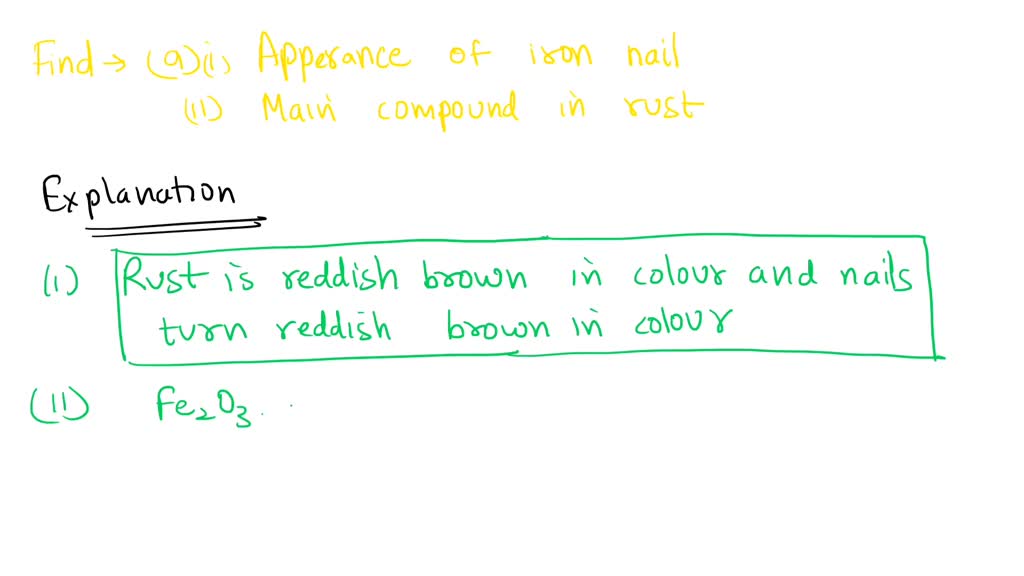 Find → (a)(i) Apperance of iron nail
(II) Main compound in rust
Explanation
(1) Rust is reddish brown in colour and nails
turn reddish brown in colour
(II) Fe₂O₃ . .